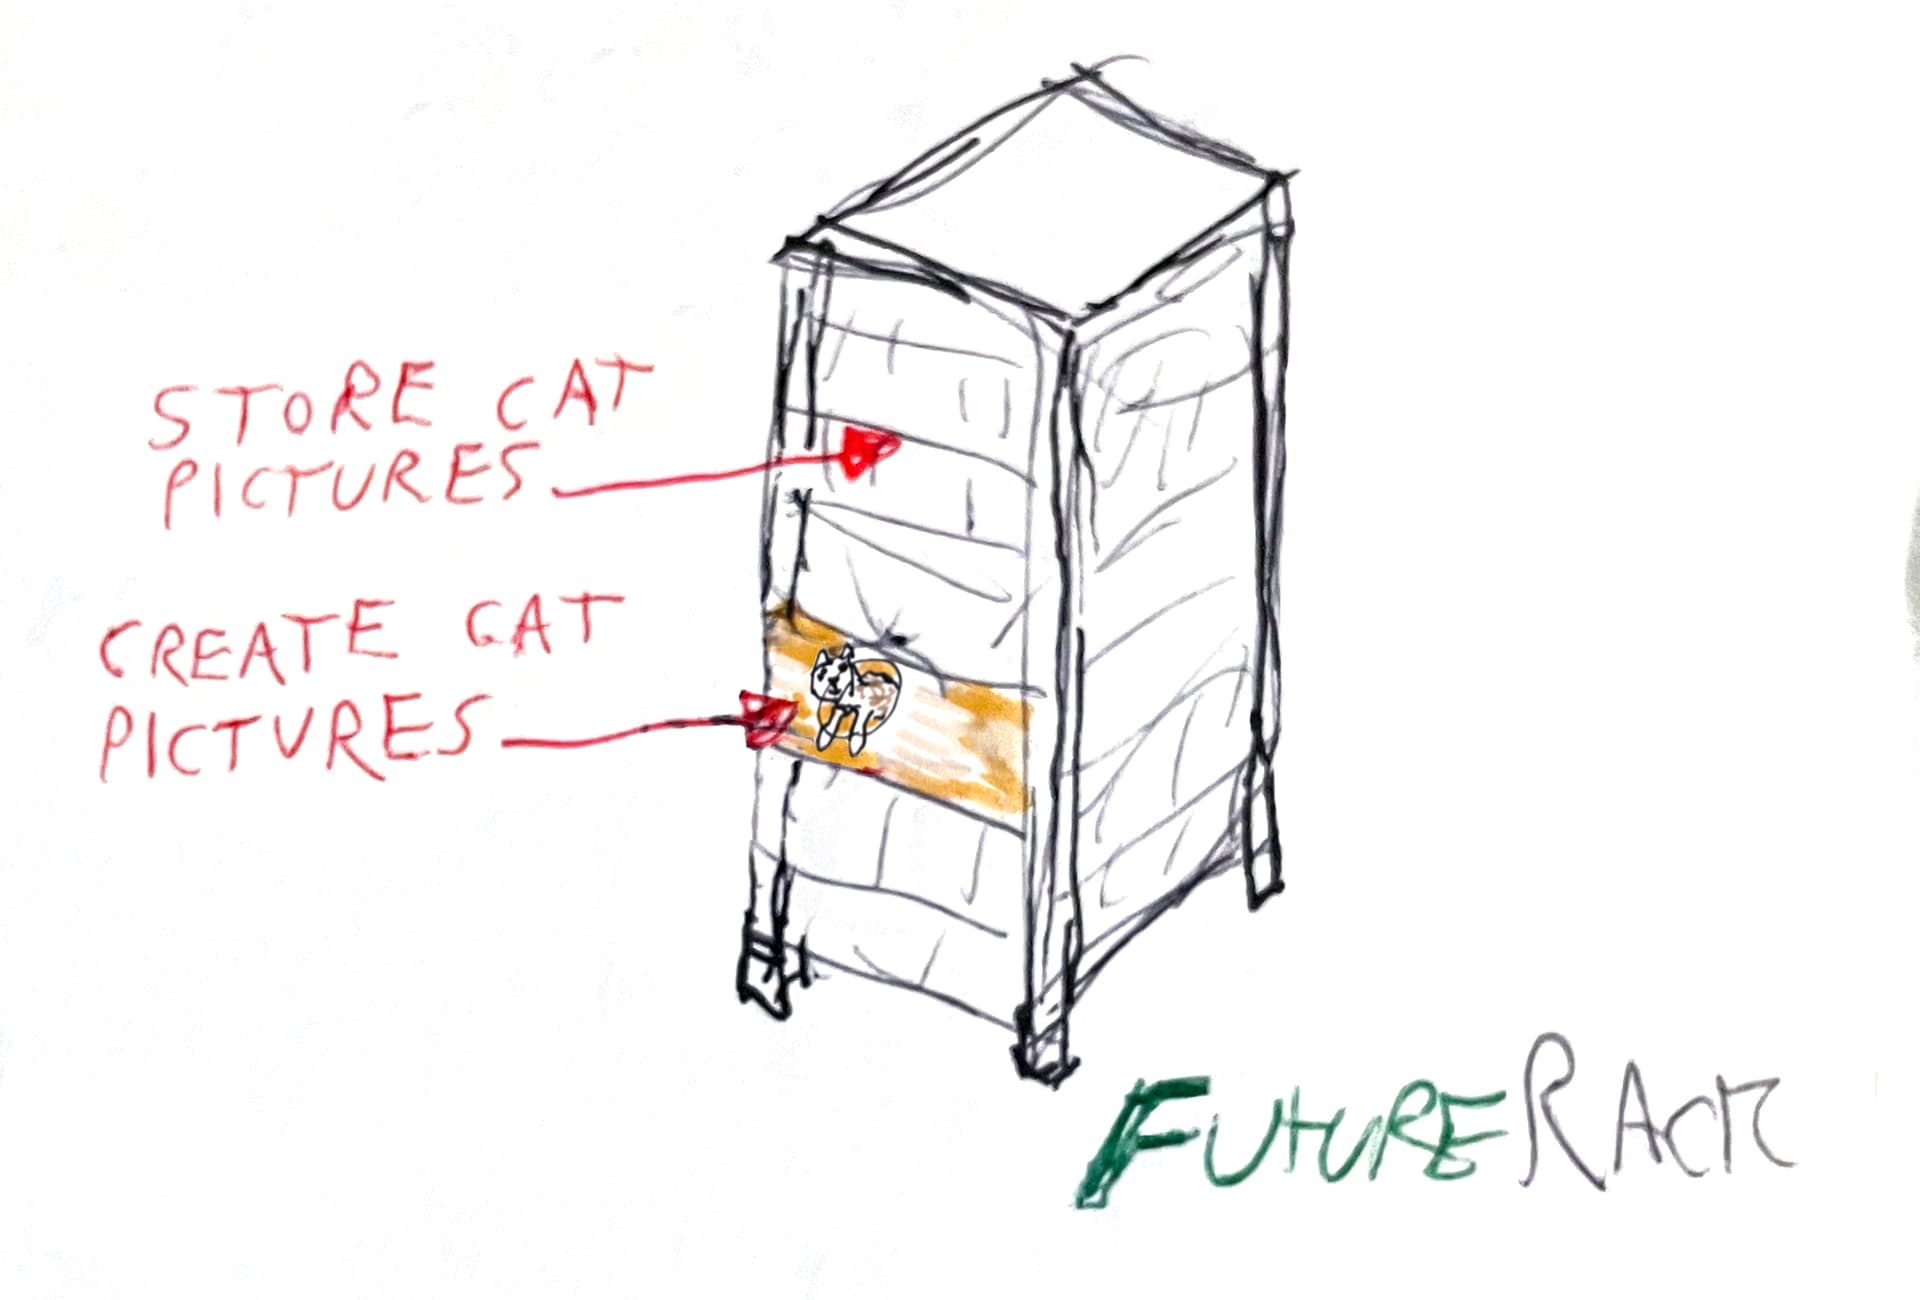 STORE CAT
PICTURES
CREATE CAT
PICTURES
FUTURERACK